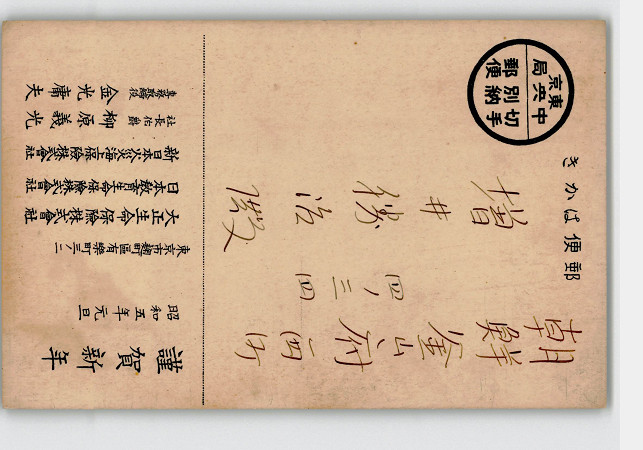 郵便はかき
東京中央局
切手別納郵便
朝鮮釜山府西町
四ノ三四
増井 治殿
謹賀新年
昭和五年元旦
東京市麹町區有樂町三ノ二
大正生命保險株式會社
日本教育生命保險株式會社
新日本火災海上保險株式會社
社長 伯爵 柳原義光
專務取締役 金光庸夫